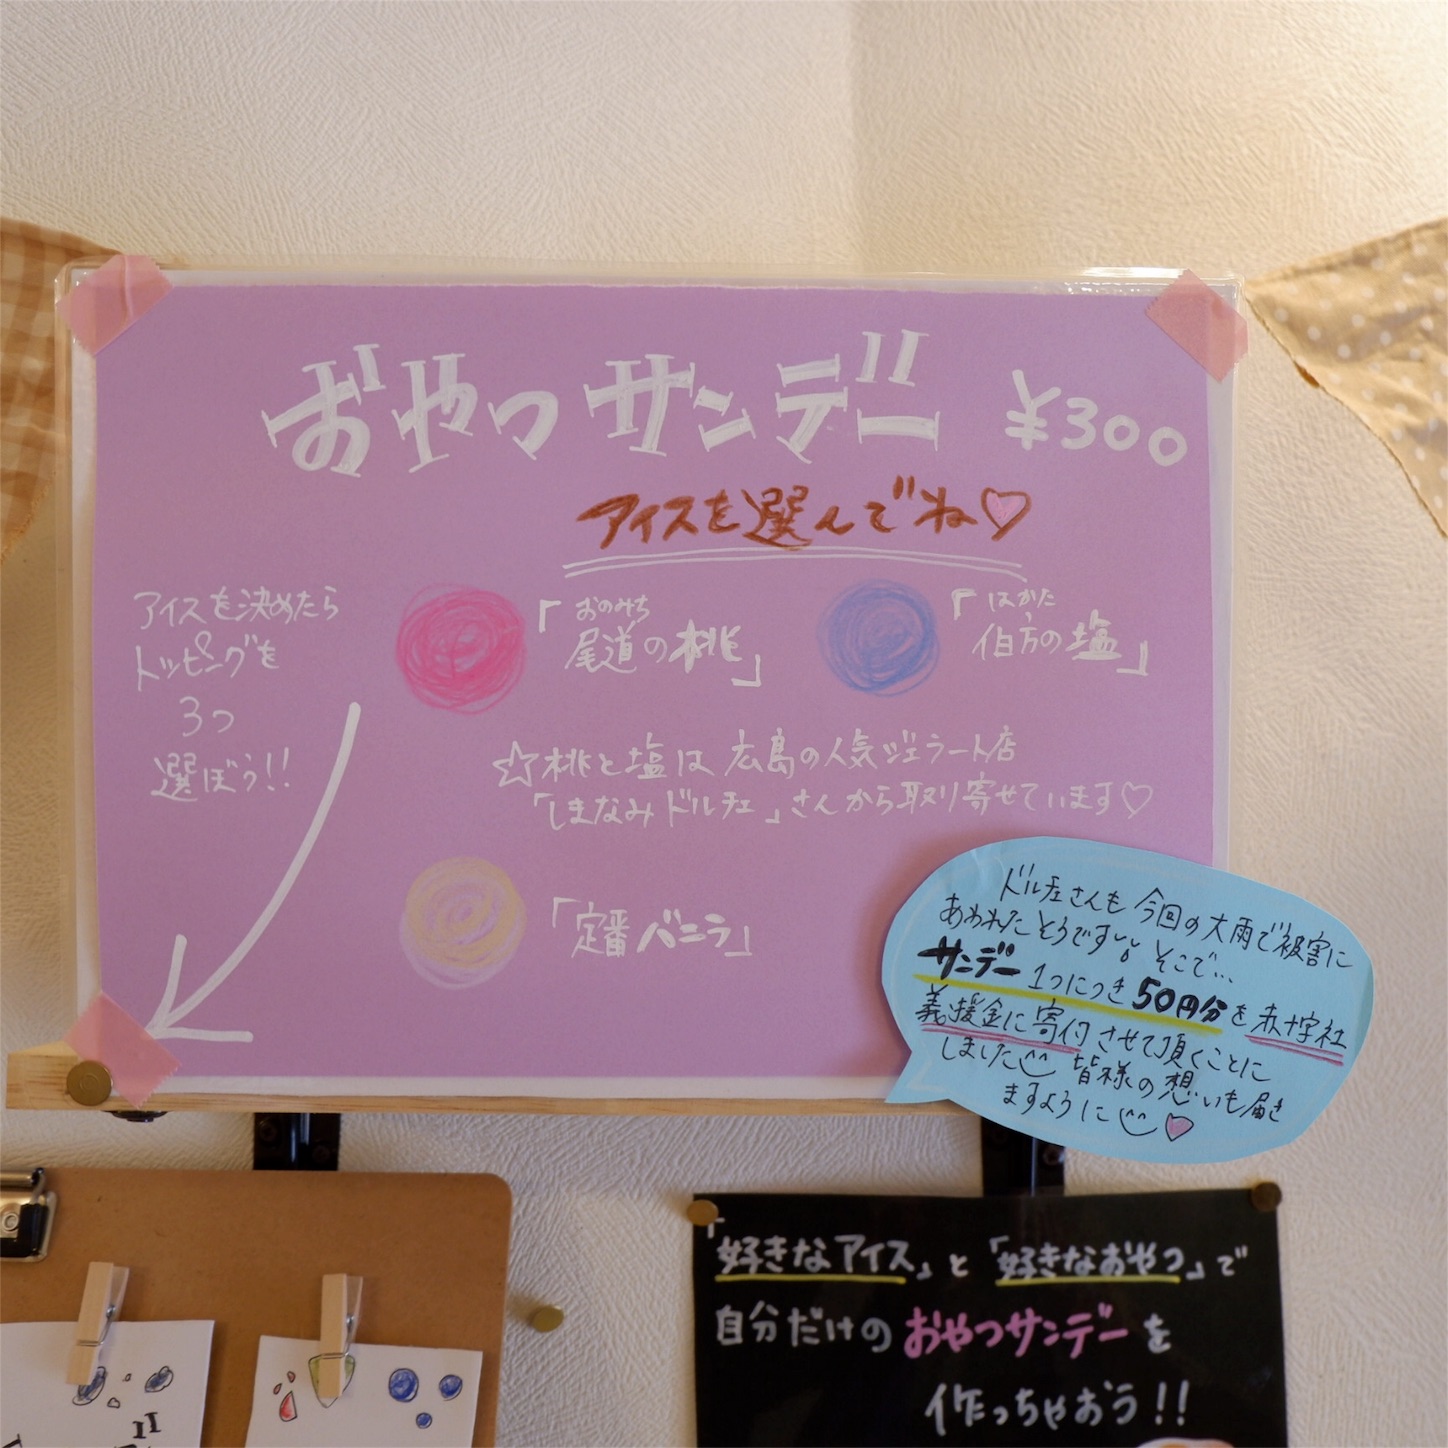 おやつサンデー ¥300
アイスを選んでね♡
アイスを決めたら
トッピングを
3つ
選ぼう!!
おのみち
「尾道の桃」
はかた
「伯方の塩」
☆桃と塩は広島の人気ジェラート店
「しまなみドルチェ」さんから取り寄せています♡
「定番バニラ」
ドルチェさんも今回の大雨で被害に
あわれたそうです そこで…
サンデー1つにつき50円分を赤十字社
義援金に寄付させて頂くことに
しました 皆様の想いも届き
ますように♡
「好きなアイス」と「好きなおやつ」で
自分だけのおやつサンデーを
作っちゃおう!!